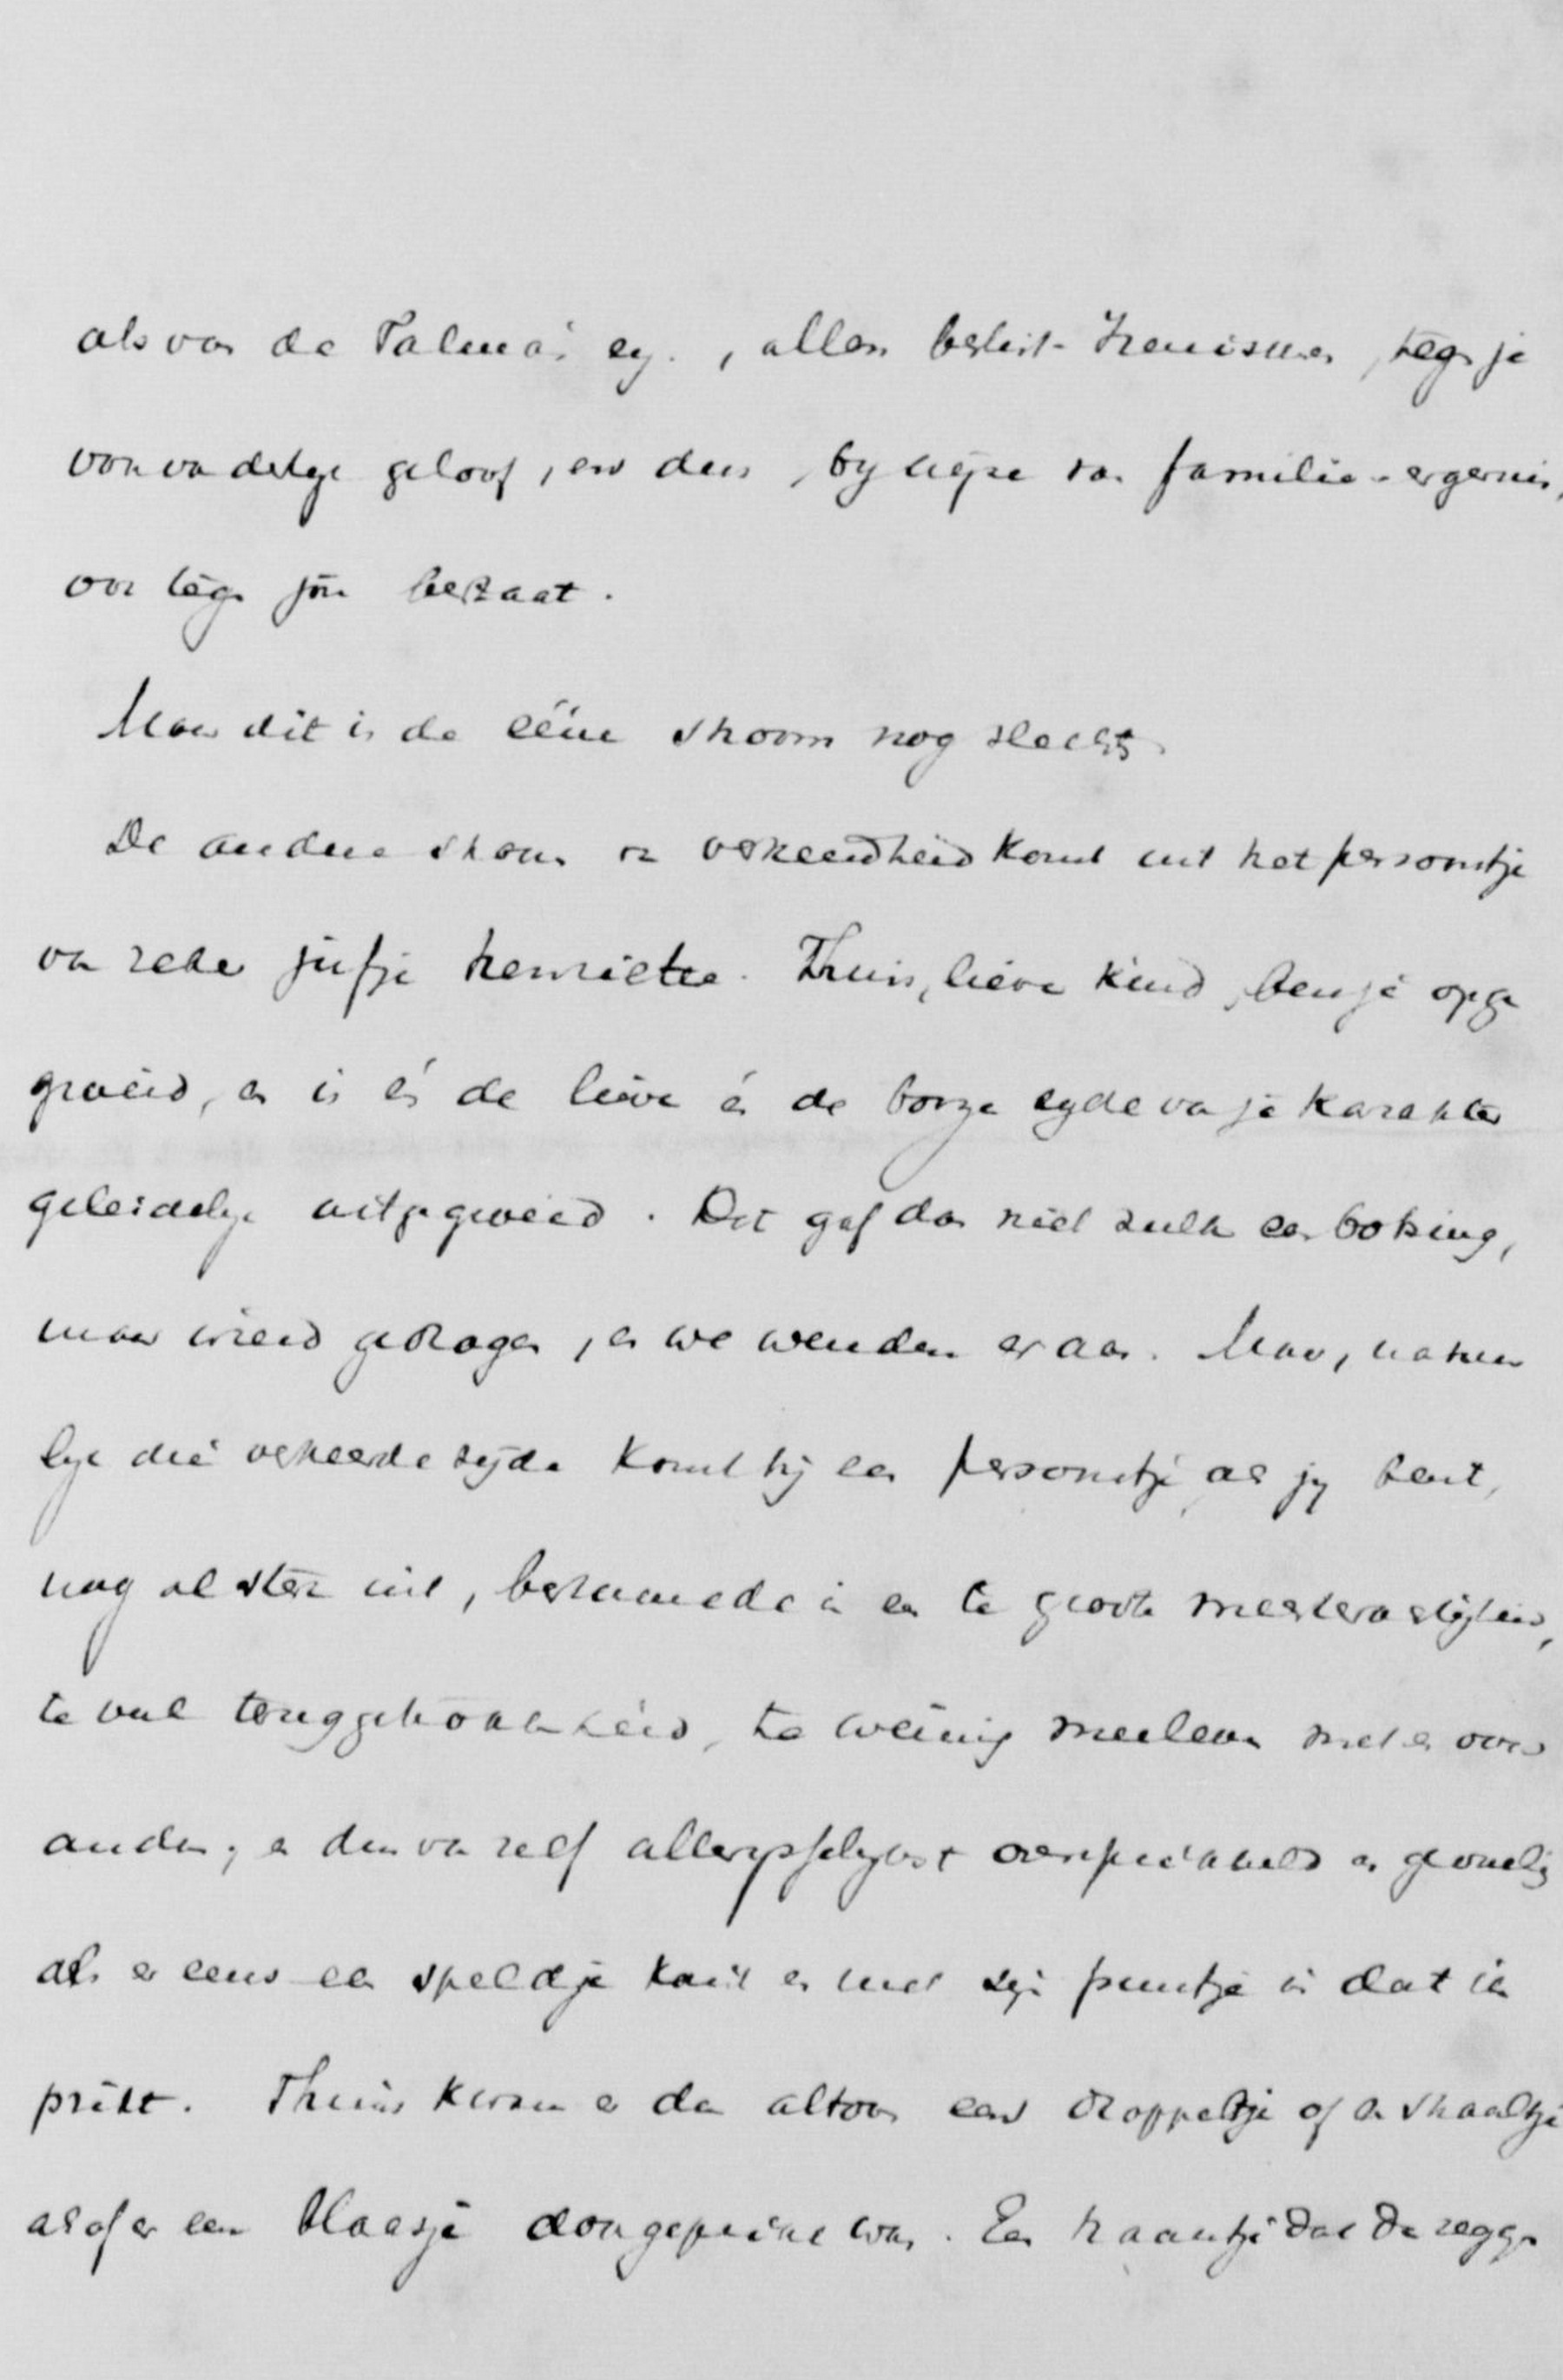 als van de Talma's en. , allen beslist- Irenisme, tegen je
voorvaderlyk geloof, en dus, by wyze van familie-ergernis,
ook tegen jou bestaat.
Maar dit is de ééne stroom nog slechts.
De andere stroom van verkeerdheid komt uit het persoontje
van zeker jufje Henriette. Thuis, lieve kind, ben je opge
groeid, en is én de lieve én de booze zyde van je karakter
geleidelyk uitgegroeid. Dat gaf dan niet zulk een botsing,
maar wierd gedragen, en we wenden er aan. Maar, natuur
lyk die verkeerde zyde komt bij een persoontje, als jy bent,
nog al sterk uit, bestaande in een te groote meesterachtigheid,
te veel teruggetrokkenheid, te weinig meeleven met en voor
anderen; en dan van zelf allerypselykst overprikkeld en gevoelig
als er eens een speldje komt en met zyn puntje in dat ik
prikt. Thuis kwam er dan altoos een droppeltje of een straaltje
alsof er een blaasje doorgeprikt was. Een traantje dat de oogen